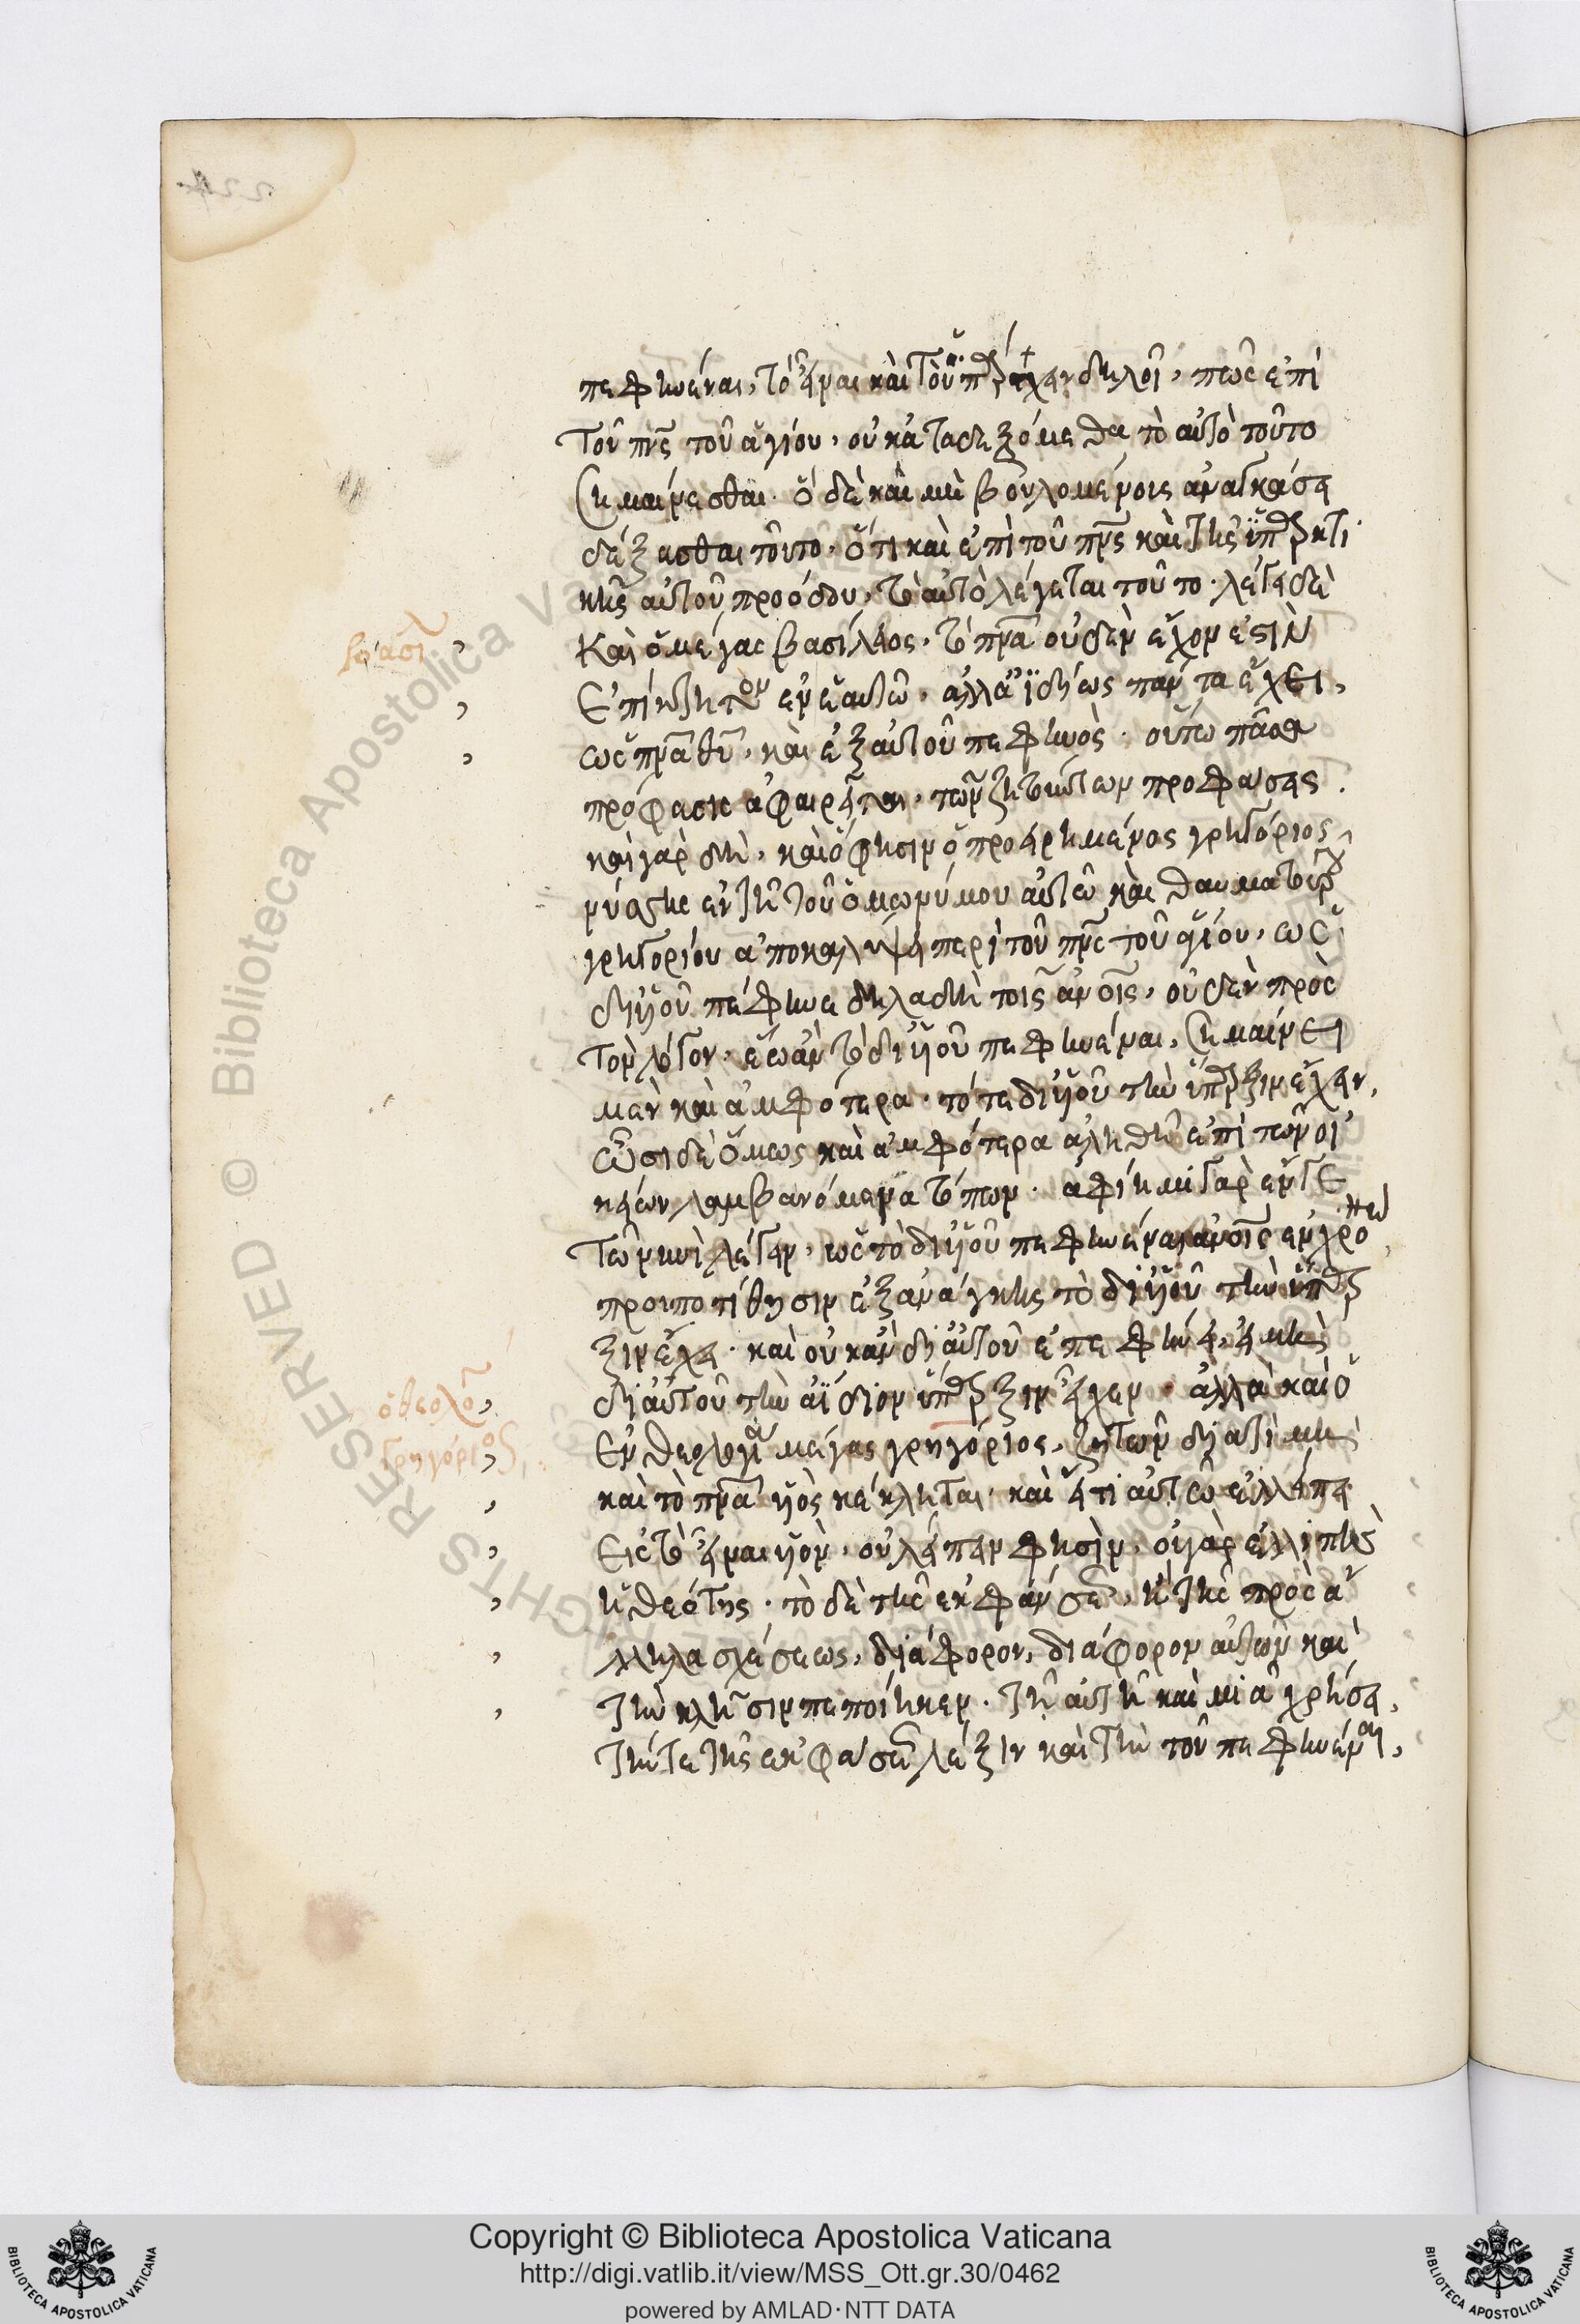 πεφηνέναι, τὸ εἶναι καὶ τὸ ὑπάρχειν δηλοῖ, πῶς ἐπὶ
τοῦ πνς τοῦ ἁγίου, οὐ καταδεξόμεθα τὸ αὐτὸ τοῦτο
σημαίνεσθαι. ὃ δὲ καὶ μὴ βουλομένοις ἀναγκάσει
δέξασθαι τοῦτο. ὅτι καὶ ἐπὶ τοῦ πρς καὶ τῆς
κῆς αὐτοῦ προόδου, τὸ αὐτὸ λέγεται τοῦτο. λέγει δὲ
καὶ ὁ μέγας βασίλειος, τὸ πνα οὐδὲν ἔχον ἐστὶν
ἐπίκτητον ἐν ἑαυτῶ. ἀλλ' ἀϊδίως πάντα ἔχει,
ὡς πνα θυ, καὶ ἐξ αὐτοῦ πεφηνὸς. οὕτω πᾶσα
πρόφασις ἀφαιρεῖται, τῶν ζητούντων προφάσεις.
καὶ γὰρ δὴ, καὶ ὅ φησιν ὁ προειρημένος γρηγόριος
νύσης ἐν τῆ τοῦ ὁμωνύμου αὐτῶ καὶ θαυματουρ
γρηγορίου ἀποκαλύψει περὶ τοῦ πνς τοῦ ἁγίου, ὡς
δι' υἱοῦ πέφηνε δηλαδὴ τοῖς ανοις, οὐδὲν πρὸς
τὸν λόγον. τὸ δι' υἱοῦ πεφηνέναι, σημαίνει
μὲν καὶ ἀμφότερα. τό τε δι' υἱοῦ τὴν ὕπαρξιν ἔχειν,
ὦσι δὲ ὅμως καὶ ἀμφότερα ἀληθῆ ἐπὶ τῶν οἰ
κείων λαμβανόμενα τόπων. ἀφίημι γὰρ
λέγειν, ὡς τὸ δι' υἱοῦ πεφηνέναι ανοις ἐν χρόνω
προυποτίθησιν ἐξ ἀνάγκης τὸ δι' υἱοῦ τὴν ὕπαρ
ξιν ἔχει. καὶ οὐκ ἂν δι' αὐτοῦ ἐπεφήνει, εἰ μὴ
δι' αὐτοῦ τὴν ἀΐδιον ὕπαρξιν εἶχεν. ἀλλὰ καὶ ὁ
ἐν θεολογία μέγας γρηγόριος, ζητῶν διατί μὴ
καὶ τὸ πνα υἱὸς κέκληται. καὶ εἴ τι αὐτῶ ἐλλείπει
εἰς τὸ εἶναι υἱὸν, οὐ λείπειν φησὶν, οὐ γὰρ ἐλλιπὴς
ἡ θεότης. τὸ δὲ τῆς ἐκφάνσεως, ἢ τῆς πρὸς ἄ
λληλα σχέσεως, διάφορον, διάφορον αὐτῶν καὶ
τὴν κλῆσιν πεποίηκεν. τῆ αὐτῆ καὶ μιᾶ χρήσει,
τήν τε τῆς ἐκφάσεως λέξιν καὶ τὴν τοῦ πεφηνέναι,
βασι
ὁ θεολο
γρηγόριος
Copyright © Biblioteca Apostolica Vaticana
http://digi.vatlib.it/view/MSS_Ott.gr.30/0462
powered by AMLAD·NTT DATA
BIBLIOTECA APOSTOLICA VATICANA
BIBLIOTECA APOSTOLICA VATICANA